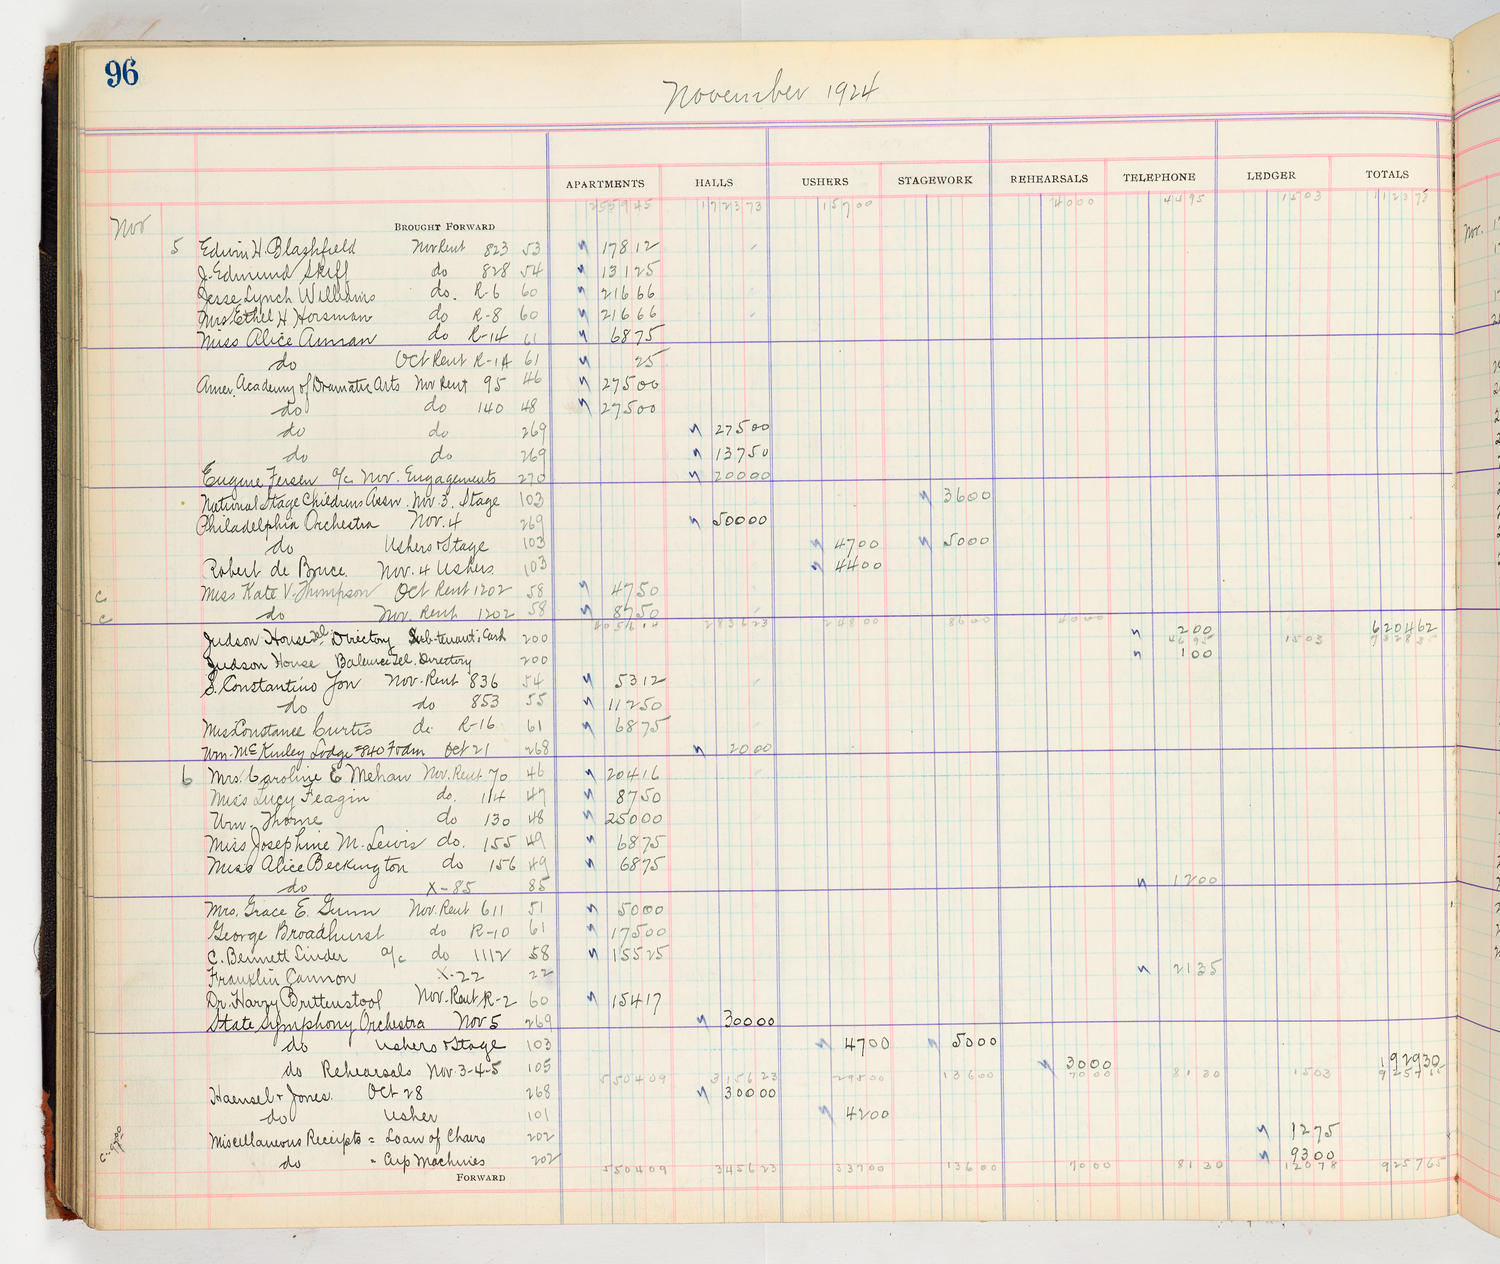 96
November 1924
APARTMENTS HALLS USHERS STAGEWORK REHEARSALS TELEPHONE LEDGER TOTALS
255945 172373 15700 4000 4495 1503 112375
Nov
BROUGHT FORWARD
5 Edwin H. Blashfield Nov Rent 823 53 17812
J. Edmund Skiff do 828 54 13125
Jesse Lynch Williams do. R-6 60 21666
Mrs Ethel H Horsman do R-8 60 21666
Miss Alice Amran do R-14 61 6875
do Oct Rent R-14 61 25
Amer. Academy of Dramatic Arts Nov Rent 95 46 27500
do do 140 48 27500
do do 269 27500
do do 269 13750
Eugene Fersen a/c Nov. Engagements 270 20000
National Stage Childrens Assn. Nov. 3. Stage 103 3600
Philadelphia Orchestra Nov. 4 269 50000
do Ushers & Stage 103 4700 5000
Robert de Bruce. Nov. 4 Ushers. 103 4400
c Miss Kate V. Thompson Oct Rent 1202 58 4750
c do Nov. Rent 1202 58 8750
283623 24800 8600 4000
Judson House Tel. Directory Sub-tenant: Cash 200 200 620462
4695 1503
Judson House Balance Tel. Directory 200 100
S. Constantino Yon Nov. Rent 836 54 5312
do do 853 55 11250
Miss Constance Curtis do R-16 61 6875
Wm. McKinley Lodge #840 F&AM Oct 21 268 2000
6 Mrs. Caroline E Mehan Nov. Rent 70 46 20416
Miss Lucy Feagin do. 114 47 8750
Wm. Thorne do 130 48 25000
Miss Josephine M. Lewis do. 155 49 6875
Miss Alice Beckington do 156 49 6875
do X-85 85 1200
Mrs. Grace E. Gunn Nov. Rent 611 51 5000
George Broadhurst do R-10 61 17500
C. Bennett Linder a/c do 1112 58 15525
Franklin Cannon X-22 22 2135
Dr. Harry Brittenstool Nov. Rent R-2 60 15417
State Symphony Orchestra Nov 5 269 30000
do Ushers & Stage 103 4700 5000
do Rehearsals Nov. 3-4-5 105 3000 192930
550409 315623 29500 13600 7000 8130 1503
Haensel & Jones. Oct 28 268 30000
do Usher 101 4200
Miscellaneous Receipts = Loan of Chairs 202 1275
do " Cup Machines 202 9300
550409 345623 33700 13600 7000 8130 12078 925765
FORWARD